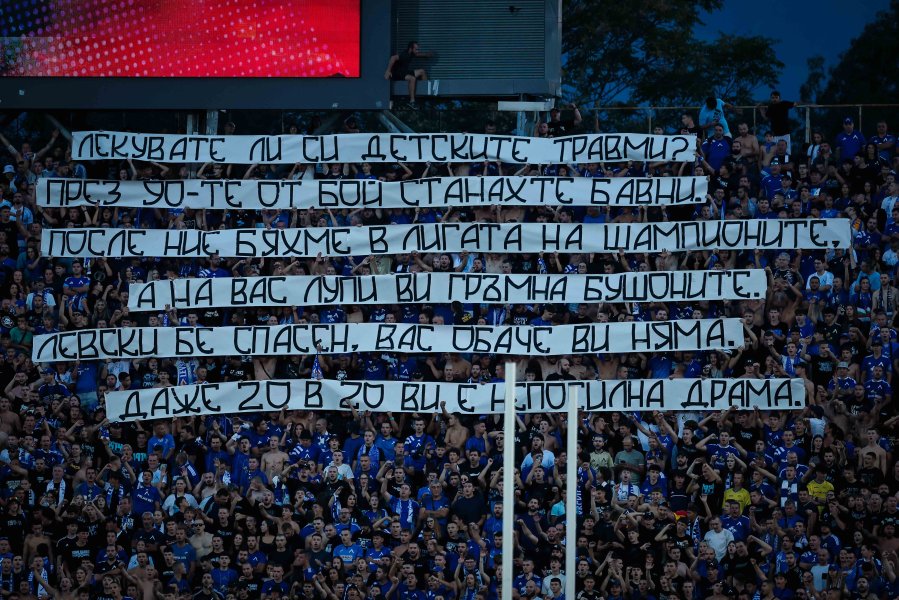 ЛЕКУВАТЕ ЛИ СИ ДЕТСКИТЕ ТРАВМИ?
ПРЕЗ 90-ТЕ ОТ БОЙ СТАНАХТЕ БАВНИ.
ПОСЛЕ НИЕ БЯХМЕ В ЛИГАТА НА ШАМПИОНИТЕ,
А НА ВАС ЛУПИ ВИ ГРЪМНА БУШОНИТЕ.
ЛЕВСКИ БЕ СПАСЕН, ВАС ОБАЧЕ ВИ НЯМА.
ДАЖЕ 20 В 20 ВИ Е НЕПОСИЛНА ДРАМА.